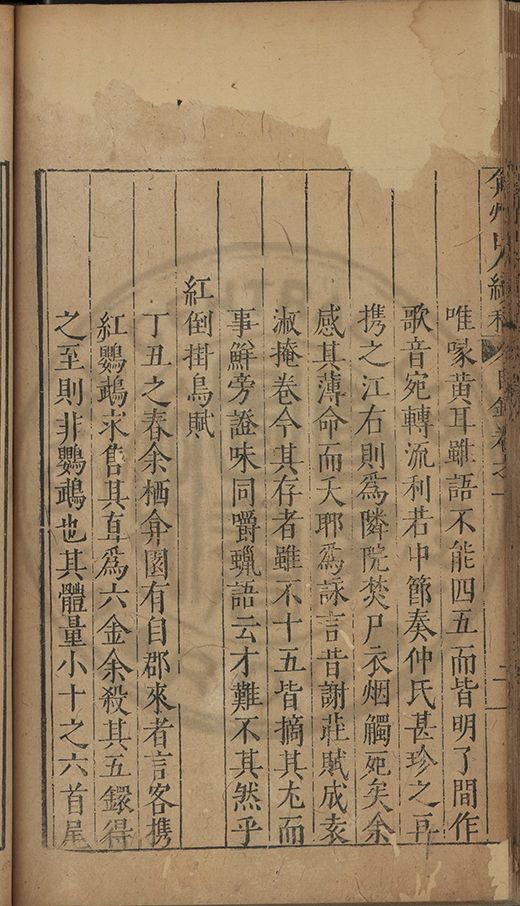 弇州山人續稿 卷之一
唯喙黃耳雖語不能四五而皆明了間作
歌音宛轉流利若中節奏仲氏甚珍之再
携之江右則爲隣院焚尸衣烟觸死矣余
感其薄命而夭耶爲詠言昔謝莊賦成袁
淑掩卷今其存者雖不十五皆摘其尤而
事鮮旁證味同嚼蠟語云才難不其然乎
紅倒掛鳥賦
丁丑之春余栖弇園有自郡來者言客携
紅鸚鵡求售其直爲六金余殺其五鐶得
之至則非鸚鵡也其體量小十之六首尾